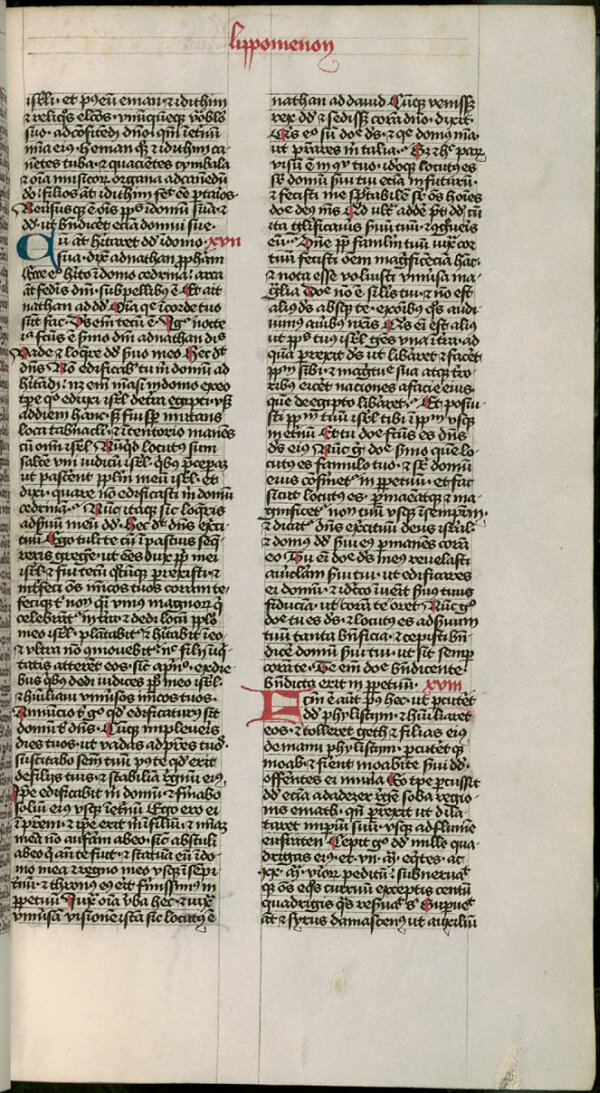 lippomenon
isrl̄i · et p⁹ eū eman · ⁊ idithim
⁊ reliq̄s elc̄os · vnūquēq̨ vo̅blo̅
suo · ad cōfitēdū dn̄o · qm̄ ī et̄nū
mīa ei⁹ · heman q̨ ⁊ idithim ca-
nētes tuba · ⁊ quaciētes cymbala
⁊ oīa musicoꝝ organa ad canēdū
do · filios āt idithim fec̄ ēe ꝑtaios ·
Reusus q̨ ē oīs ppl̄s ī domū suā · ⁊
dd̄ · ut bn̄dicēt ecīa domui sue ·
Cū āt hītaret dd̄ ī domo · xvii
sua · dix̄ ad nathan ꝓph̄am
Ecce eo hito ī domo cedrina · arca
āt fedīs dn̄i · sub pellib⁹ ē Et ait
nathan ad dd̄ Oīa que ī corde tuo
sūt fac · Ds em̄ tecū ē · Igr̄ nocte
ista fc̄us ē sm̄o dn̄i ad nathan dīs
Vade ⁊ loq̄re dd̄ ſuo meo Hec dt̄
dn̄s No edificab̄ tu m̄ domū ad
hitādū · nz̄ em̄ māsi ī domo ex eo
tp̄e q̊ eduxi isrl̄ de t̄ra egipti · vsq̨
ad diem hanc · sꝫ fui sp̄ mutans
loca tabn̄acl̄i · ⁊ ī tentorio manēs
cū om̄i isrl̄ Nūqd̄ locutus sum
saltē vni iudicū isrl̄ · qb⁹ p̄cepaꝫ
ut pascēnt ppl̄m meū isrl̄ · et
dixi · quare nō edificasti m̄ domū
cedrinā · Nūc itaq̨ sic loq̄ris
ad ſuū meū dd̄ · Hec dt̄ dn̄s ex̄ci-
tuū Ego tuli te cū ī pastuis seq̄-
reris gregē · ut ēes dux ppl̄i mei
isrl̄ · ⁊ fui tecū q̊cūq̨ ꝑrexisti · ⁊
int̄feci oēs inīcos tuos coram te ·
feciq̨ t̄ nom̄ q̄si vni⁹ magnoꝝ q̄
celebrāt̄ ī t̄ra · ⁊ dedi locū ppl̄o
meo isrl̄ · plātabit̄ ⁊ hītabit ī eo ·
⁊ vltra nō ꝯmouebit̄ nc̄ filij īiq̄-
tatis atterēt eos · sic a pn̄o · ex die-
bus qb⁹ dedi iudices ppl̄o meo isrl̄ ·
⁊ hūiliaui vniūsos inīcos tuos ·
Annūcio t̄ go · qd̄ edificatur⁹ sit
domū t̄ dn̄s · Cūq̨ impleueris
dies tuos · ut vadas ad p̄res tuos ·
suscitabo sem̄ tuū p⁹ te qd̄ erit
de filijs tuis · ⁊ stabiliā regnū ei⁹ ·
Ip̄e edificabit m̄ domū · ⁊ firmabo
soliū ei⁹ vsq̨ ī et̄nū Ego ero ei
ī p̄rem · ⁊ ip̄e erit m̄ ī filiū · ⁊ mīaꝫ
meā nō aufam̄ ab eo · sic abstuli
ab eo q̄ an̄ te fuit · ⁊ statuā eū ī do-
mo mea ⁊ regno meo vsq̨ ī sempi-
t̄nū · ⁊ thron⁹ ei⁹ erit firmissim⁹ in
ꝑpetuū Iux̄ oīa v̄ba hec · ⁊ iux̄
vniūsaꝫ visionē istā sic locut⁹ ē
nathan ad dauid Cūq̨ venissꝫ
rex dd̄ ⁊ sedissꝫ corā dn̄o · dixit ·
Qis eo sū dn̄e ds̄ · ⁊ q̄ dom⁹ mā ·
ut p̄stares m̄ talia · Sꝫ ⁊ hꝫ paꝝ
visū ē ī ꝯspectu tuo · idoq̨ locut⁹ es
sr̄ domū ſui tui ecīa in futurū ·
⁊ fecisti me sp̄tabilē sr̄ oēs hoīes
dn̄e de⁹ m̄s · Qd̄ ult̄ addē pt̄ dd̄ cū
ita gl̄ificauis ſuū tuū · ⁊ ꝯgueris
eū · Dn̄e ꝓpt̄ famlm̄ tuū iux̄ cor
tuū fecisti oēm mag̅ficēciā hāc ·
⁊ nota esse voluisti vniūsa ma-
g̅lia Dn̄e nō ē sil̄is tui · ⁊ nō est
ali⁹ ds̄ absq̨ te · ex oib⁹ qs̄ audi-
uim⁹ aurib⁹ nr̄is Qis em̄ est ali⁹
ut ppl̄s tu⁹ isrl̄ · gēs vna ī t̄ra · ad
quā ꝑrexit ds̄ ut libāret ⁊ facet̄
ppl̄m sibi · ⁊ mag̅tue sua atq̨ t̄ro-
rib⁹ eicēt naciones a facie eius ·
que de egipto libaret̄ · Et posui-
sti ppl̄m tuū isrl̄ tibi ī ppl̄m vsq̨
in et̄nū Et tu dn̄e fc̄us es dn̄s
ds̄ ei⁹ Nūc g̊ dn̄e · sm̄o que lo-
cut⁹ es famulo tuo · ⁊ sr̄ domū
eius ꝯfirmet̄ in ꝑpetuū · et fac
sicut locut⁹ es · ꝑmaneatq̨ ⁊ ma-
gnificet̄ nom̄ tuū vsq̨ ī sempitnū ·
⁊ dicat̄ dn̄s ex̄cituū deus isrl̄ ·
⁊ dom⁹ dd̄ ſui ei⁹ ꝑmanēs corā
eo Tu em̄ dn̄e ds̄ me⁹ reuelasti
auriclam ſui tui · ut edificares
ei domū · ⁊ idcco īuēit ſu⁹ tuus
fiduciā · ut corā te oret Nūc g̊
dn̄e tu es ds̄ · ⁊ locut⁹ es ad ſuum
tuū tanta bn̄ficia · ⁊ cepisti bn̄-
dicē domū ſui tui · ut sit semp̄
corā te · Te em̄ dn̄e bn̄dicente
bn̄dicta erit in ꝑpetuū · xviii
Fc̄m ē aūt p⁹ hec · ut ꝑcutēt
dd̄ phylistiym · ⁊ hūiliaret
eos · ⁊ tolleret geth ⁊ filias ei⁹
de manu phylistiym · ꝑcutēt q̨
moab · ⁊ fierent moabite ſui dd̄ ·
offerentes ei mūna Eo tp̄e ꝑcussit
dd̄ ecīa adadezer regē soba regio-
nis emath · qn̄ ꝑrexit ut dila-
taret imꝑiū suū · vsq̨ ad flumē
eufraten Cepit g̊ dd̄ mille qua-
drigas ei⁹ · et vii aȳ eq̄tes · ac
xx aȳ viroꝝ peditū · subneruat̄
q̨ oēs eq̄s curruū · exceptis centū
quadrigis qs̄ resūat̄ s̄ Supuēt
āt ⁊ syrus damascen⁹ ut auxiliū